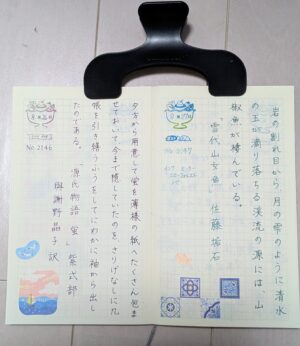 岩の割れ目から、月の雫のように清水
の玉が滴り落ちる渓流の源には、山
椒魚が棲んでいる。
「雪代山女魚」 佐藤垢石
No 2147
夕方から用意して蛍を薄様の紙へたくさん包ま
せておいて、今まで隠していたのを、さりげなしに几
帳を引き繕うふうをしてにわかに袖から出し
たのである。
「源氏物語 蛍」紫式部
與謝野晶子 訳
No 2146